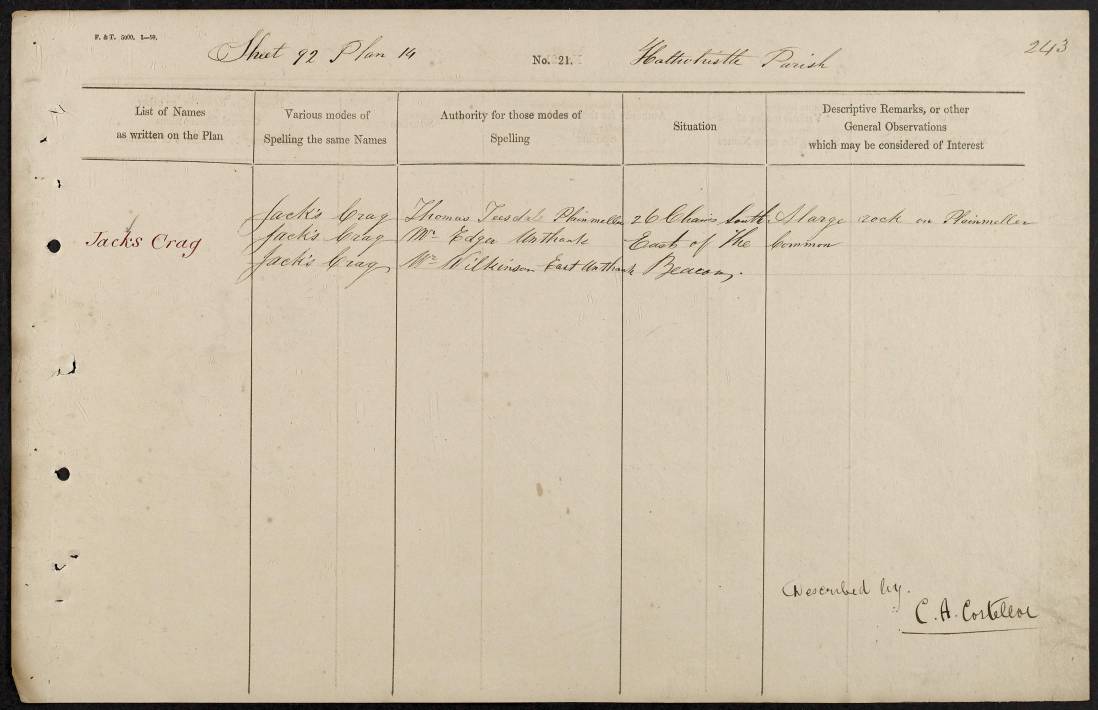 F. & T. 5000. 2—59.
Sheet 92 Plan 14
No. 21.
Haltwhistle Parish
243
List of Names
as written on the Plan
Various modes of
Spelling the same Names
Authority for those modes of
Spelling
Situation
Descriptive Remarks, or other
General Observations
which may be considered of Interest
Jack's Crag Thomas Teesdale Plainmeller 26 Chains South A large rock on Plainmeller
Jacks Crag Jack's Crag Mr. Edger Unthank East of The Common
Jack's Crag Mr. Wilkinson East Unthank Beacon.
Described by.
C. A. Costelloe